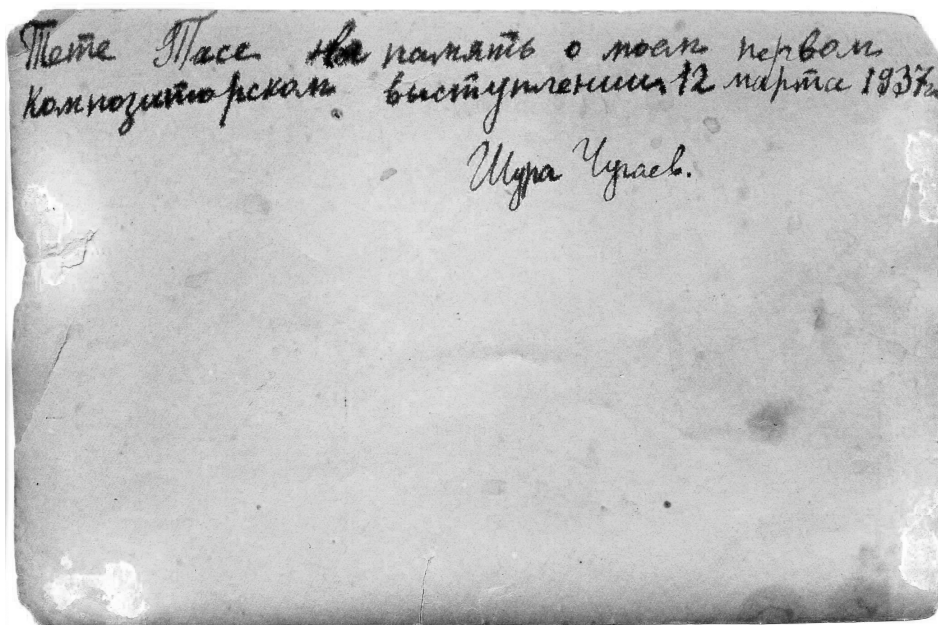 Тете Тасе на память о моем первом
композиторском выступлении 12 марта 1937г.
Шура Чугаев.